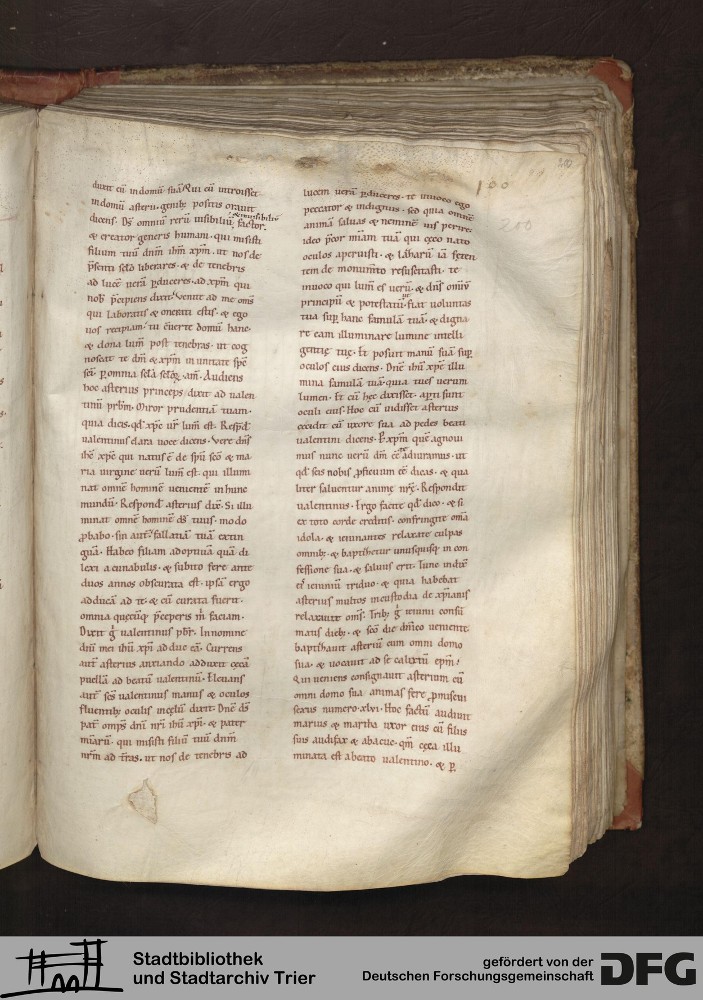 duxit eū in domū suā. Qui cū introisset
in domū asterii. genib; positis orauit
dicens. Ds̄ omniū rerū uisibiliū, & inuisibiliū factor.
& creator generis humani. qui misisti
filium tuū dn̄m ih̄m xp̄m. ut nos de
p̄senti sc̄lo liberares. & de tenebris
ad lucē uerā p̄duceres. ad xp̄m qui
nob̄ p̄cipiens dixit. Venite ad me om̄s
qui laboratis & onerati estis. & ego
uos reficiam. tu c̄uerte domū hanc.
& dona lum̄ post tenebras. ut cog
noscat te dm̄ & xp̄m in unitate sp̄s
sc̄i. p̄ omnia sc̄la sc̄loꝝ. am̄. Audiens
hoc asterius princeps dixit ad ualen
tinū prb̄m. Miror prudentiā tuam.
quia dicis. qd̄ xp̄c ur̄ lum̄ est. Respd̄
ualentinus clara uoce dicens. Vere dn̄s
ih̄c xp̄c qui natus ē de sp̄u sc̄o & ma
ria uirgine uerū lum̄ est. qui illumi
nat omnē hominē uenientē in hunc
mundū. Respond̄ asterius dix̄. Si illu
minat omnē hominē ds̄ tuus. modo
p̄babo. sin aut̄ fallatiā tuā extin
guā. Habeo filiam adoptiuā quā di
lexi a cunabulis. & subito fere ante
duos annos obscurata est. ipsā ergo
adducā ad te. & cū curata fuerit.
omnia quęcūq; p̄ceperis m̄ faciam.
Dixit g̊ ualentinus pb̄r. In nomine
dn̄i mei ih̄u xp̄i adduc eā. Currens
aut̄ asterius anxiando adduxit cęcā
puellā ad beatū ualentinū. Eleuans
aut̄ sc̄s ualentinus manus & oculos
fluentib; oculis in cęlū dixit. Dn̄e ds̄
pat̄ omp̄s dn̄i nr̄i ih̄u xp̄i. & pater
mīarū. qui misisti filiū tuū dn̄m
nr̄m ad t̄ras. ut nos de tenebris ad
100
200
200
lucem uerā p̄duceres. te inuoco ego
peccator & indignus. sed quia omnē
animā saluas & neminē uis perire.
ideo p̄cor mīam tuā qui cęco nato
oculos aperuisti. & lazarū iā feten
tem de monum̄to resuscitasti. te
inuoco qui lum̄ es uerū. & dn̄s omīū
principiū & potestatū. ut fiat uoluntas
tua sup̄ hanc famulā tuā. & digna
re eam illuminare lumine intelli
gentię tuę. Et posuit manū suā sup̄
oculos eius dicens. Dn̄e ih̄u xp̄e illu
mina famulā tuā. quia tu es uerum
lumen. Et cū hęc dixisset. ap̄ti sunt
oculi eius. Hoc cū uidisset asterius
cecidit cū uxore sua ad pedes beati
ualentini dicens. P̄ xp̄m quē agnoui
mus nunc uerū dm̄ ēē adiuramus. ut
qd̄ scis nobis p̄ficuum ēē dicas. & qua
liter saluentur animę nr̄ę. Respondit
ualentinus. Ergo facite qd̄ dico. & si
ex toto corde creditis. confringite om̄a
idola. & ieiunantes relaxate culpas
omnib; & baptizetur unusquisq; in con
fessione sua. & saluus erit. Tunc indix̄
ei ieiuniū triduo. & quia habebat
asterius multos in custodia de xp̄ianis
relaxauit om̄s. Trib; g̊ ieiunii consū
matis dieb; & sc̄o die dn̄ico ueniente.
baptizauit asteriū cum omni domo
sua. & uocauit ad se calixtū ep̄m.
Qui ueniens consignauit asterium cū
omni domo sua. animas fere p̄miscui
sexus numero .xlvi. Hoc factū audiuit
marius & martha uxor eius cū filiis
suis audifax & abacuc. qm̄ cęca illu
minata est a beato ualentino. & p̄
Stadtbibliothek
und Stadtarchiv Trier
gefördert von der
Deutschen Forschungsgemeinschaft
DFG